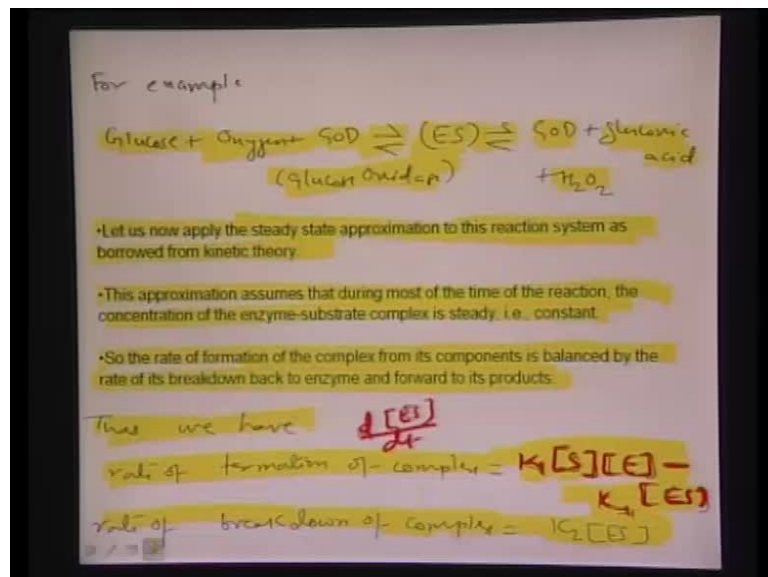 For example
Glucose + Oxygen + GOD ⇌ (ES) ⇌ GOD + gluconic
acid
(Glucose Oxidase) + H2O2
•Let us now apply the steady state approximation to this reaction system as
borrowed from kinetic theory.
•This approximation assumes that during most of the time of the reaction, the
concentration of the enzyme-substrate complex is steady. i.e., constant.
•So the rate of formation of the complex from its components is balanced by the
rate of its breakdown back to enzyme and forward to its products.
Thus we have d[ES]/dt
rate of formation of complex = K1[S][E] −
K-1[ES]
rate of breakdown of complex = K2[ES]